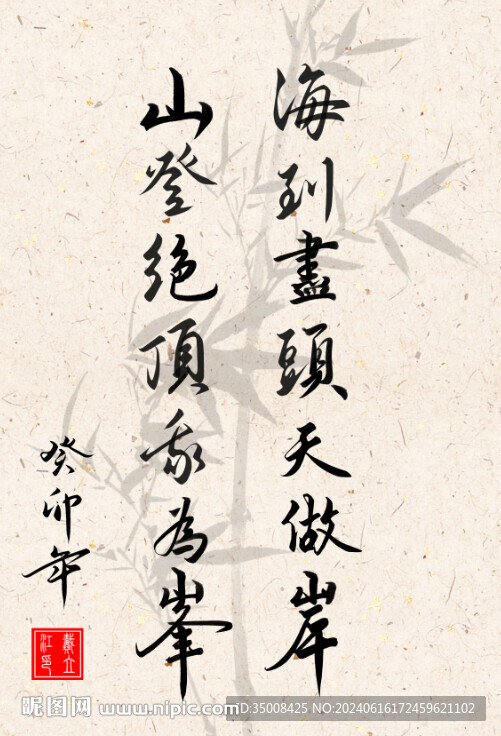 海到盡頭天做岸
山登絕頂我為峯
癸卯年
戴立
江印
昵图网 www.nipic.com
ID:35008425 NO:20240616172459621102